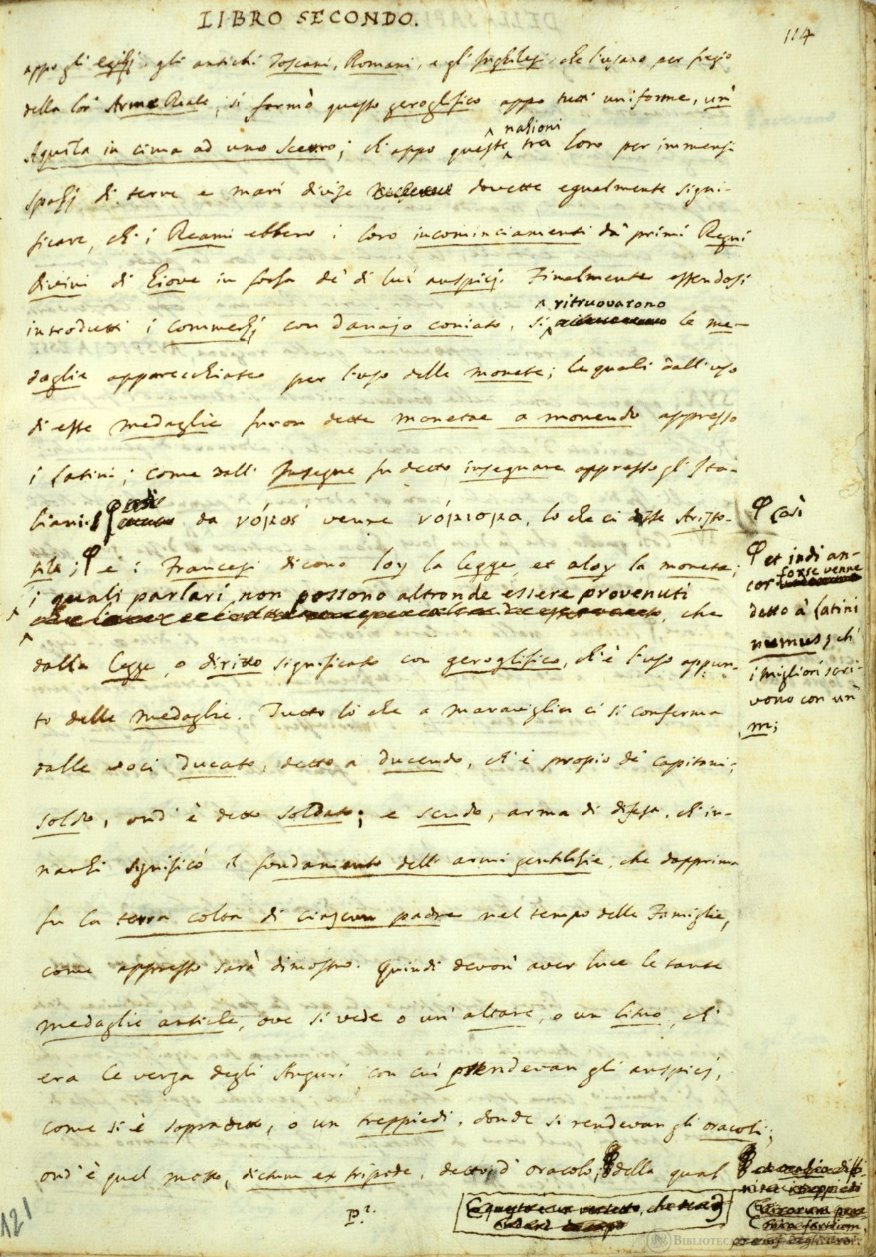 LIBRO SECONDO.
114
appo gli egizj gli antichi Toscani, Romani, e gl'Inghilesi, che l'usano per fregio
della lor' Arme Reale; si formò questo geroglifico appo tutti uniforme, un'
Aquila in cima ad uno Scettro; ch'appo queste nazioni tra loro per immensi
spazj di terre e mari divise dovette egualmente signi-
ficare, ch'i Reami ebbero i loro incominciamenti da' primi Regni
divini di Giove in forza de' di lui auspicj. Finalmente essendosi
introdutti i commerzj con danajo coniato, si ritruovarono le me-
daglie apparecchiate per l'uso delle monete; le quali dall'uso
di esse medaglie furon dette monetae a monendo appresso
i Latini; come dall' Insegne fu detto insegnare appresso gl'Ita-
liani. Così da νόμος venne νόμισμα, lo che ci disse Aristo-
tile; e i Francesi dicono loy la legge et aloy la moneta;
i quali parlari non possono altronde essere provenuti che
dalla legge o diritto significato con geroglifico, ch'è l'uso appun-
to delle medaglie. Tutto lo che a maraviglia ci si conferma
dalle voci ducato, detto a ducendo, ch'è propio de' capitani;
soldo, ond' è detto soldato; e scudo, arma di difesa, ch'in-
nanzi significò il fondamento dell' armi gentilizie, che dapprima
fu la terra colta di ciascun padre nel tempo delle Famiglie,
come appresso sarà dimostro. Quindi devon' aver luce le tante
medaglie antiche, ove si vede o un' altare, o un lituo, ch'
era la verga degli Auguri con cui prendevan gli auspicj,
come si è sopra detto, o un treppiedi, donde si rendevan gli oracoli;
ond' è quel motto, dictum ex tripode, detto d' oracolo; della qual
Così
et indi an-
cor forse venne
detto a' Latini
numus; ch'
i migliori scri-
vono con un'
m;
121
BIBLIOTECA